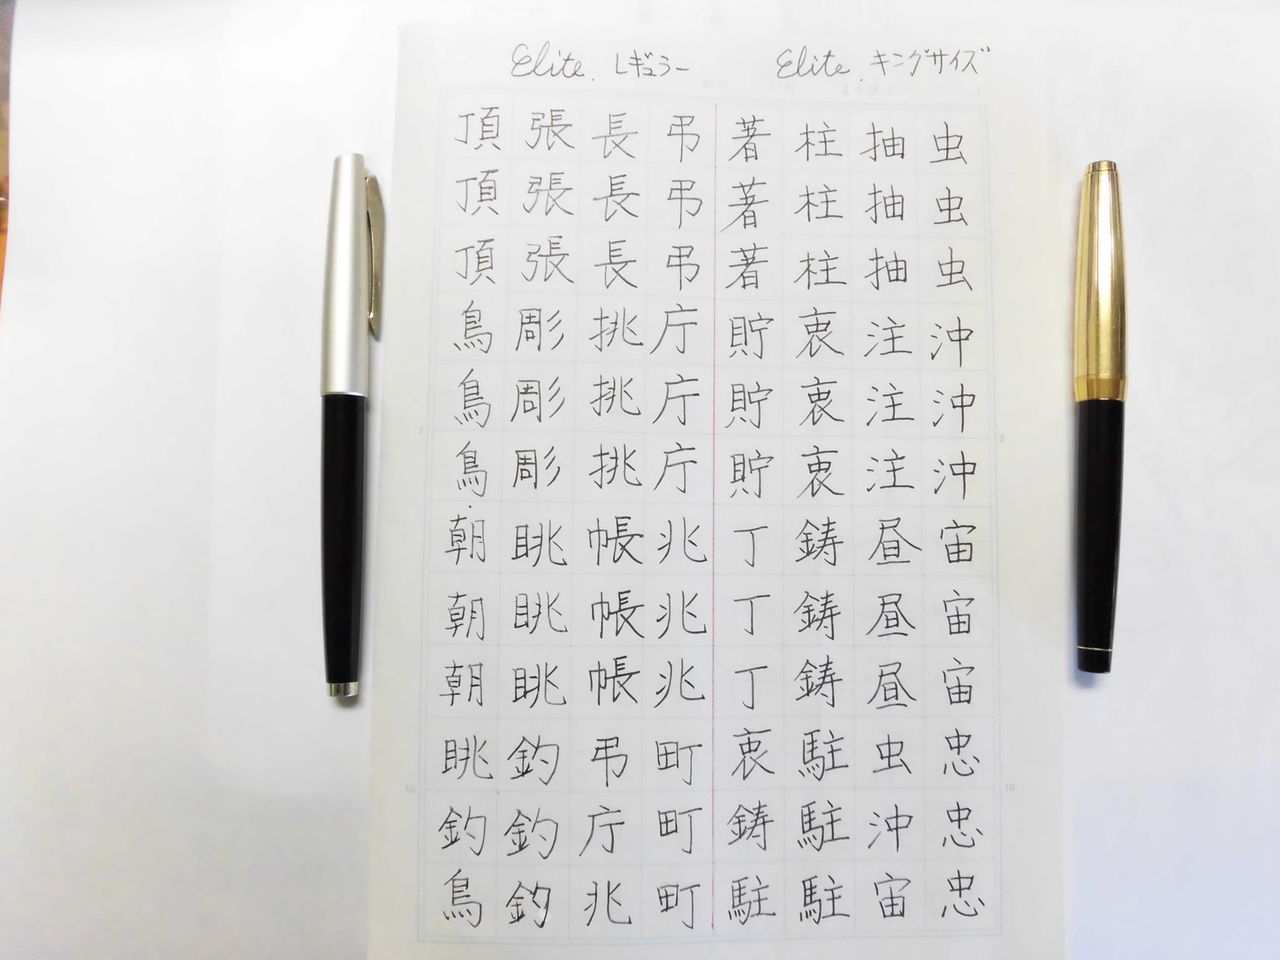 Elite. キングサイズ
虫虫虫沖沖沖宙宙宙忠忠忠
抽抽抽注注注昼昼昼虫沖宙
柱柱柱衷衷衷鋳鋳鋳駐駐駐
著著著貯貯貯丁丁丁衷鋳駐
Elite. レギュラー
弔弔弔庁庁庁兆兆兆町町町
長長長挑挑挑帳帳帳弔庁兆
張張張彫彫彫眺眺眺釣釣釣
頂頂頂鳥鳥鳥朝朝朝眺釣鳥
5
10
5
10